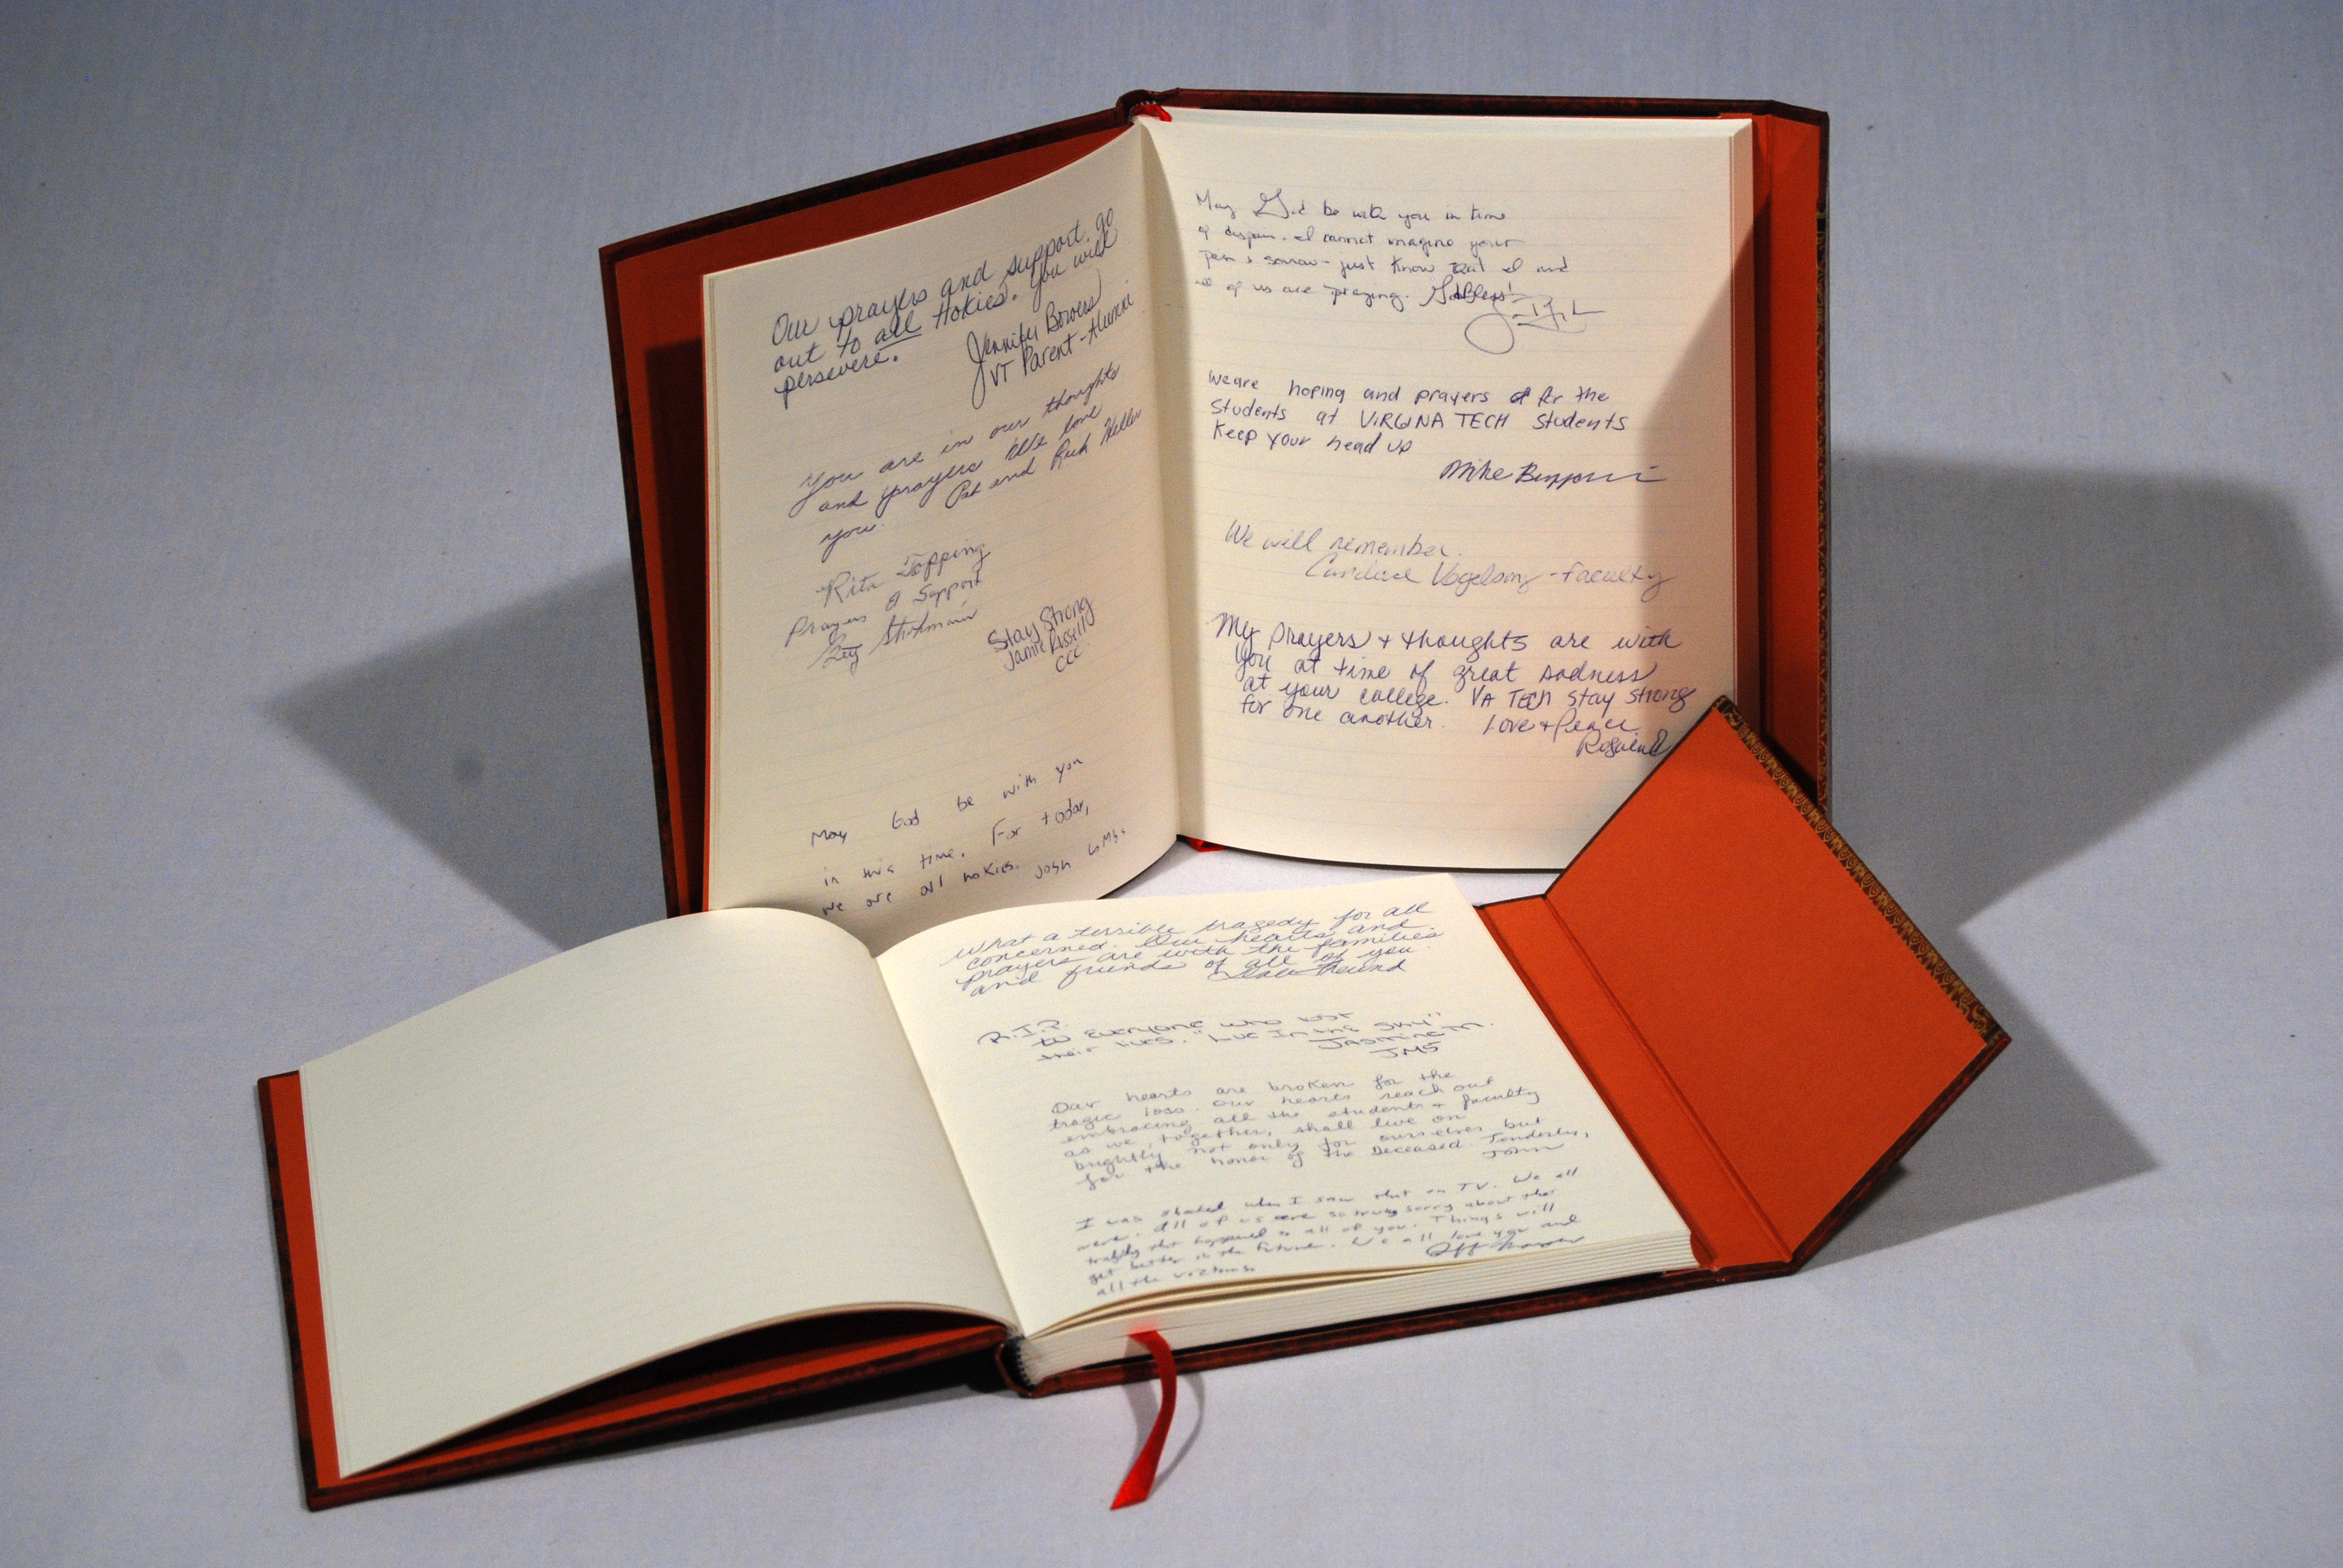 Our prayers and support go
out to all Hokies. You will
persevere.
Jennifer Bowers
VT Parent - Alumni
You are in our thoughts
and prayers We love
you. Pat and Rick Heller
Rita Topping
Prayers & Support
Stay Strong
Jamie
CCC
May God be with you
in this time. For today,
we are all hokies. Josh
May God be with you in time
of despair. I cannot imagine your
pain & sorrow - just know that I and
all of us are praying. God Bless!
We are hoping and prayers for the
Students at VIRGINA TECH students
Keep your head up
Mike
We will remember.
Candice Vogelsong - faculty
My prayers + thoughts are with
you at time of great sadness
at your college. VA TECH stay strong
for one another. Love + Peace
Rosalend
What a terrible tragedy for all
concerned. Our hearts and
prayers are with the families
and friends of all of you.
Freund
R.I.P.
to everyone who lost
their lives. "Luv In the Sky"
Jasmine M.
JMS
Our hearts are broken for the
tragic loss. Our hearts reach out
embracing all the students + faculty
as we, together, shall live on
brightly not only for ourselves but
for the honor of the Deceased. Tenderly,
John
I was shaked when I saw that on TV. We all
were. All of us are so truly sorry about that
tradgity that happened to all of you. Things will
get better in the future. We all love you and
all the victims.